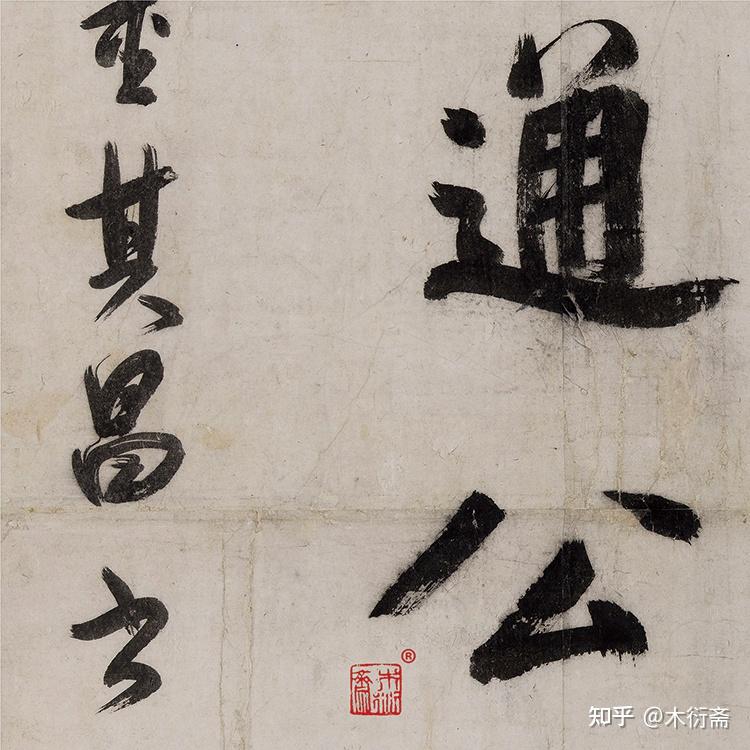 通公
董其昌书
木衍齋
®
知乎 @木衍斋